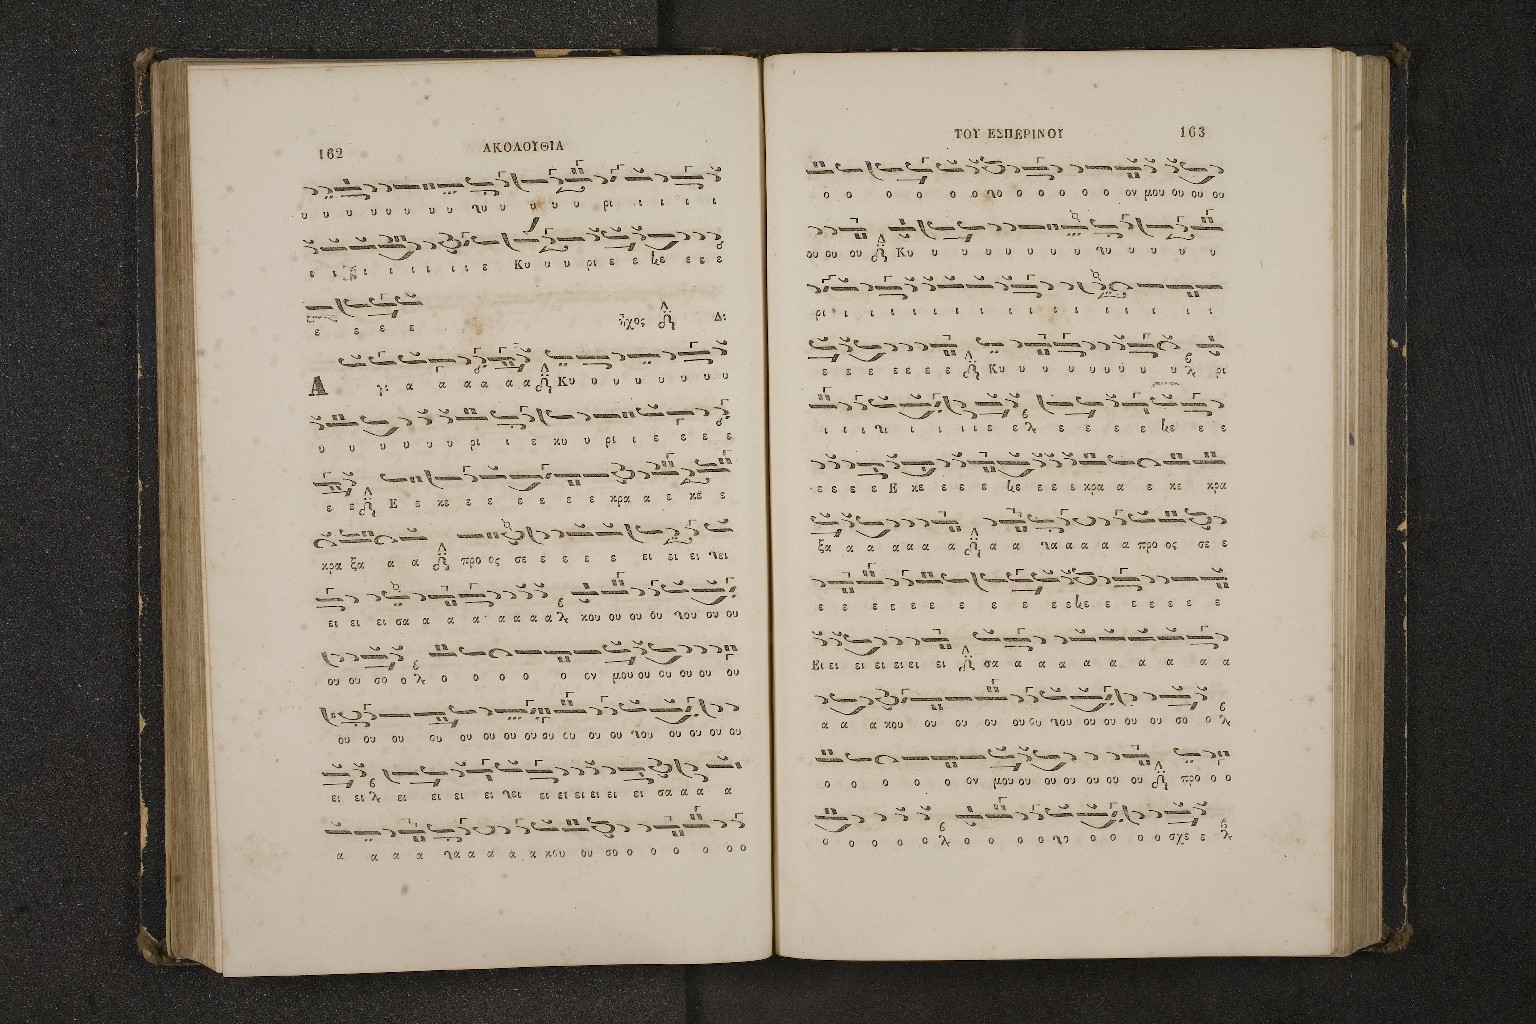 162
ΑΚΟΛΟΥΘΙΑ
υ υ υ υ υ υ υ υ υ υ υ υ υ υ ρι ι ι ι ι
ι ι ι ι ι ι ι ι ε Κυ υ υ ρι ε ε ε ε ε
ε ε ε ε ἦχος Δι
Α γι α α α α α α Κυ υ υ υ υ υ υ υ
υ υ υ υ υ υ ρι ι ε κυ υ ρι ι ε ε ε ε
ε ε Ε ε κε ε ε ε ε ε ε κρα α ε κέ ε
κρα ξα α α προ ος σε ε ε ε ε ει ει ει
ει ει ει σα α α α α α α α κου ου ου ου ου ου
ου ου σο ο ο ο ο ο ο ον μου ου ου ου ου ου
ου ου ου ου ου ου ου ου ου ου ου ου ου ου ου ου
ει ει ει ει ει ει ει ει ει ει ει ει σα α α α
α α α α α α α α α κου ου σο ο ο ο ο ο ο
ΤΟΥ ΕΣΠΕΡΙΝΟΥ
163
ο ο ο ο ο ο ο ο ο ο ο ο ον μου ου ου ου
ου ου ου Κυ υ υ υ υ υ υ υ υ υ υ υ
ρι ι ι ι ι ι ι ι ι ι ι ι ι ι ι
ε ε ε ε ε ε ε Κυ υ υ υ υ υ υ υ ρι
ι ι ι ι ι ι ι ε ε ε ε ε ε ε ε
ε ε ε ε Ε κε ε ε ε ε ε ε κρα α ε κε κρα
ξα α α α α α α α α α α α α α προ ος σε ε
ε ε ε ε ε ε ε ε ε ε ε ε ε ε ε ε ε
Ει ει ει ει ει ει ει σα α α α α α α α α α
α α α κου ου ου ου ου ου ου ου ου ου ου σο ο
ο ο ο ο ο ον μου ου ου ου ου ου ου προ ο ο
ο ο ο ο ο ο ο ο ο ο ο ο ο σχε ε